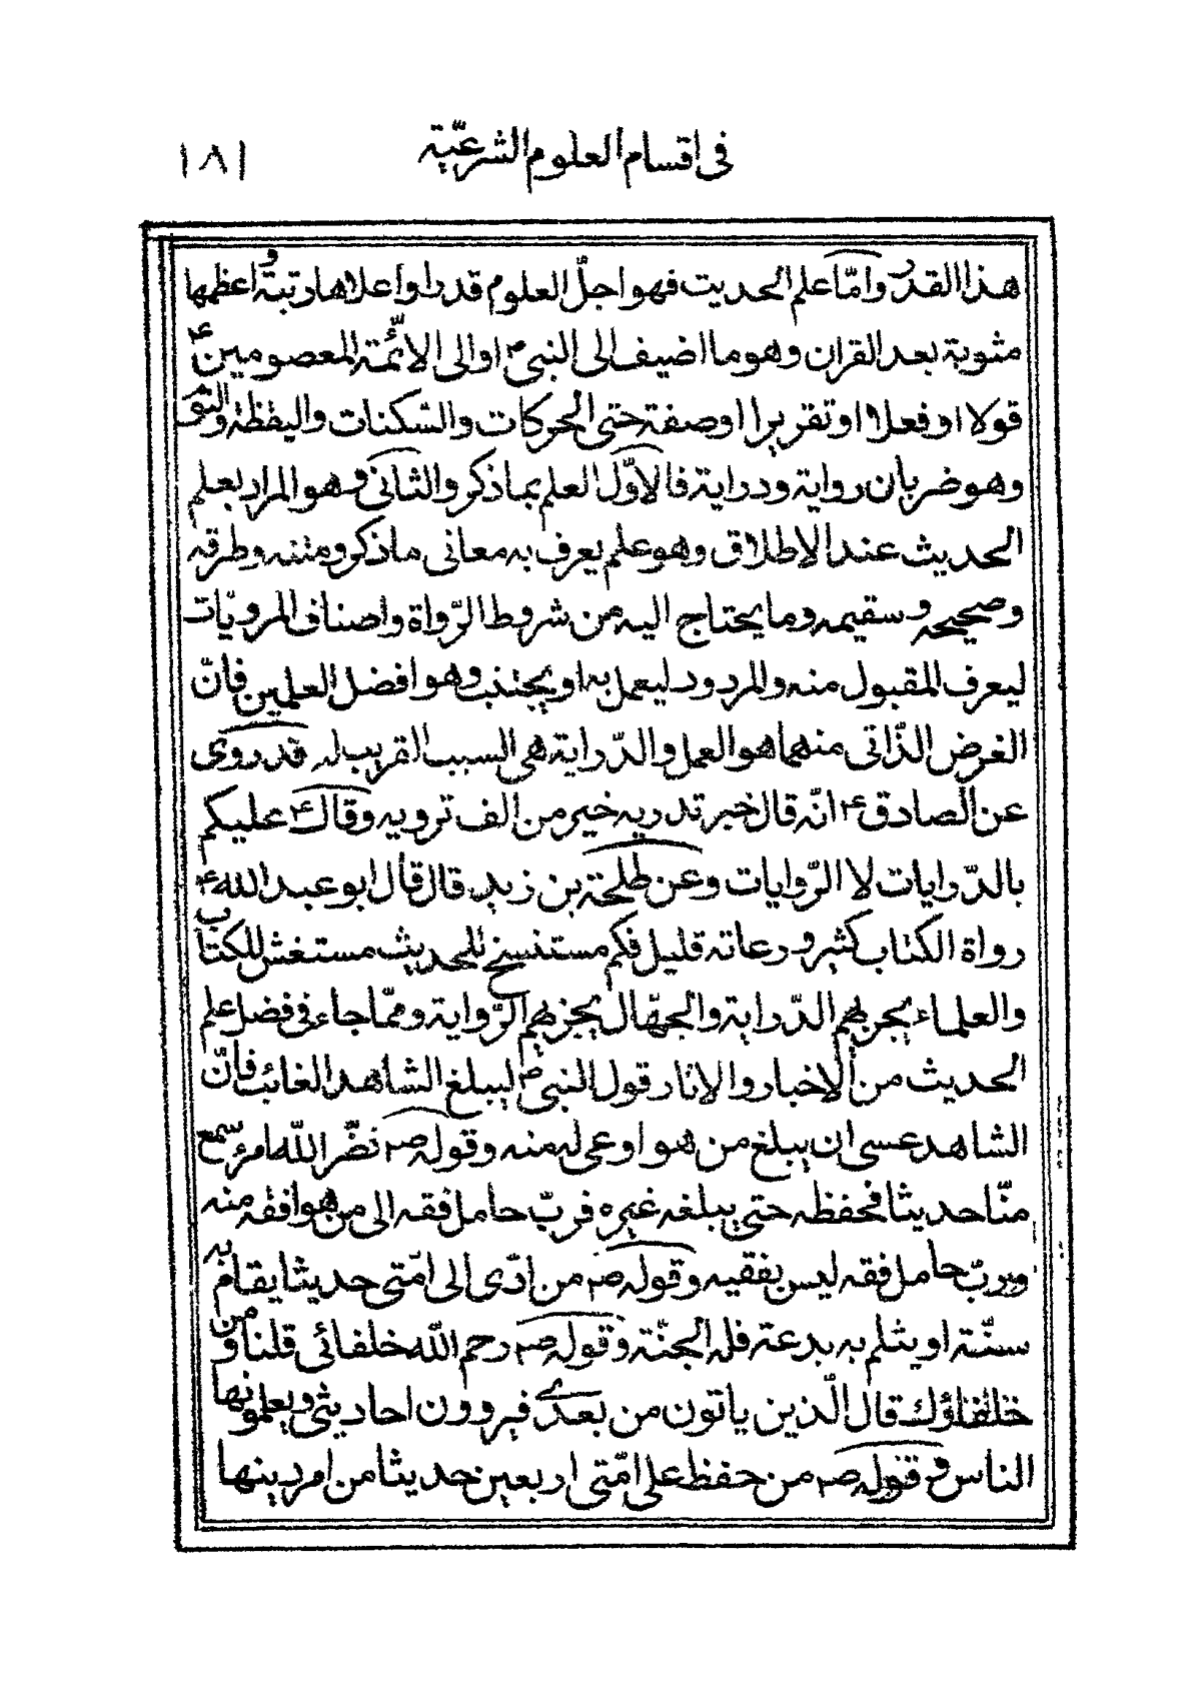 في اقسام العلوم الشرعيّة ١٨١
هذا القدر وامّا علم الحديث فهو اجلّ العلوم قدرا واعلاها رتبة واعظمها
مثوبة بعد القران وهو ما اضيف الى النبي ص او الى الائمّة المعصومين ع
قولا او فعلا او تقريرا او صفة حتى الحركات والسّكنات واليقظة والنوم
وهو ضربان رواية ودراية فالاوّل العلم بما ذكر والثاني وهو المراد بعلم
الحديث عند الاطلاق وهو علم يعرف به معاني ما ذكر ومتنه وطرقه
وصحيحه وسقيمه وما يحتاج اليه من شروط الرّواة واصناف المرويّات
ليعرف المقبول منه والمردود ليعمل به او يجتنب وهو افضل العلمين فانّ
الغرض الذّاتي منهما هو العمل والدّراية هي السبب القريب له قد روى
عن الصادق ع انّه قال خبر تدريه خير من الف ترويه وقال ع عليكم
بالدّرايات لا الرّوايات وعن طلحة بن زيد قال قال ابو عبد الله ع
رواة الكتاب كثير ورعاته قليل فكم مستنسخ للحديث مستغش للكتاب
والعلماء يجزيهم الدّراية والجهّال يجزيهم الرّواية وممّا جاء في فضل علم
الحديث من الاخبار والاثار قول النبي ص ليبلغ الشاهد الغائب فانّ
الشاهد عسى ان يبلغ من هو اوعى له منه وقوله ص نضّر الله امرء سمع
منّا حديثا فحفظه حتى يبلغه غيره فربّ حامل فقه الى من هو افقه منه
وربّ حامل فقه ليس بفقيه وقوله ص من ادّى الى امّتي حديثا يقام به
سنّة او يثلم به بدعة فله الجنّة وقوله ص رحم الله خلفائي قلنا ومن
خلفاؤك قال الّذين ياتون من بعدي فيروون احاديثي ويعلمونها
الناس وقوله ص من حفظ على امّتي اربعين حديثا من امر دينها